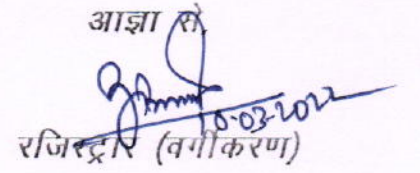 आज्ञा से,
10-03-2022
रजिस्ट्रार (वर्गीकरण)